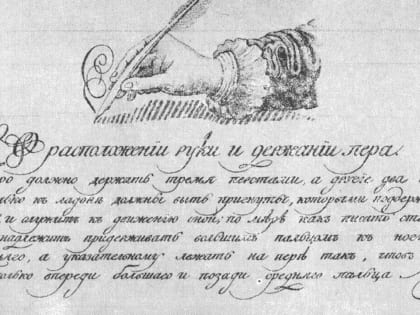 О расположенїи руки и держанїи пера.
ро должно держать тремя перстами, а другое два
ко къ ладонѣ должны быть пригнуты, которыми поддерж
и служить къ движенїю оной; по мѣрѣ какъ писать ст
надлежитъ придерживать большимъ пальцомъ къ ног
а указательному лежать на перѣ такъ, чтоб
олько впереди большаго и позади средняго пальца